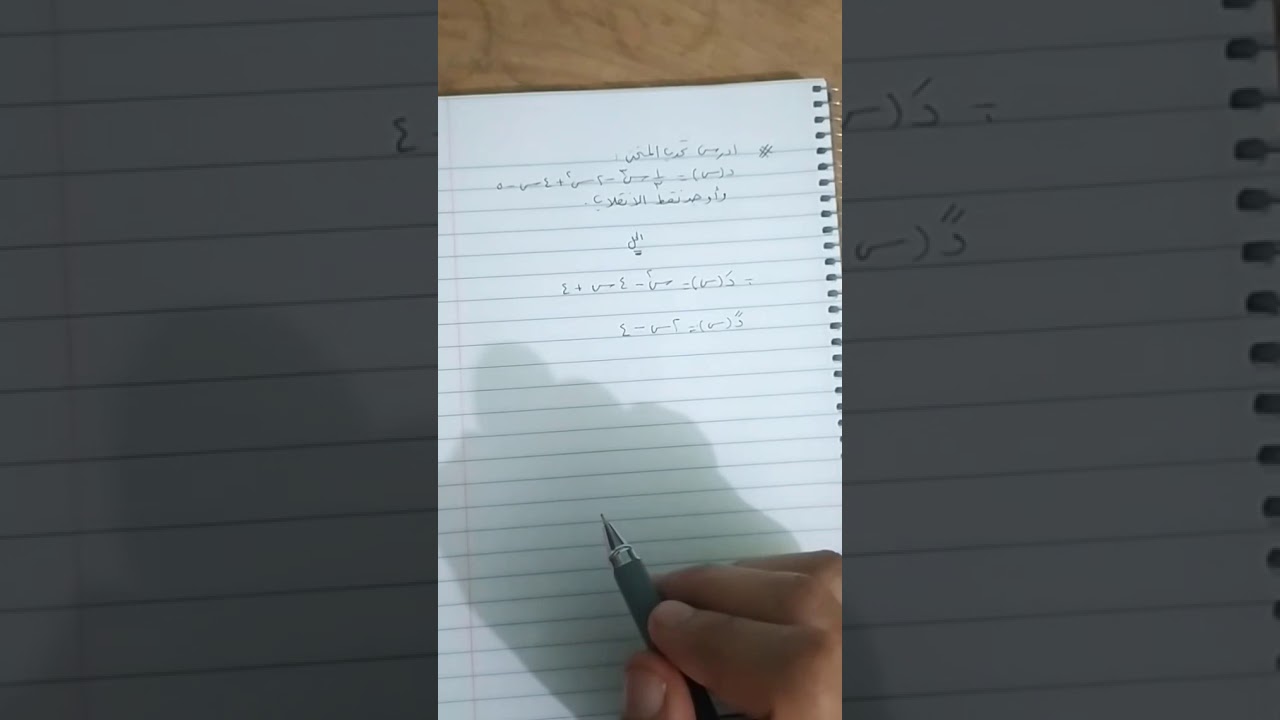 * ادرس تحدب المنحنى :
د(س) = ١/٣ س٣ - ٢س٢ + ٤س - ٥
وأوجد نقط الانقلاب .
الحل
∴ دَ(س) = س٢ - ٤س + ٤
دً(س) = ٢س - ٤